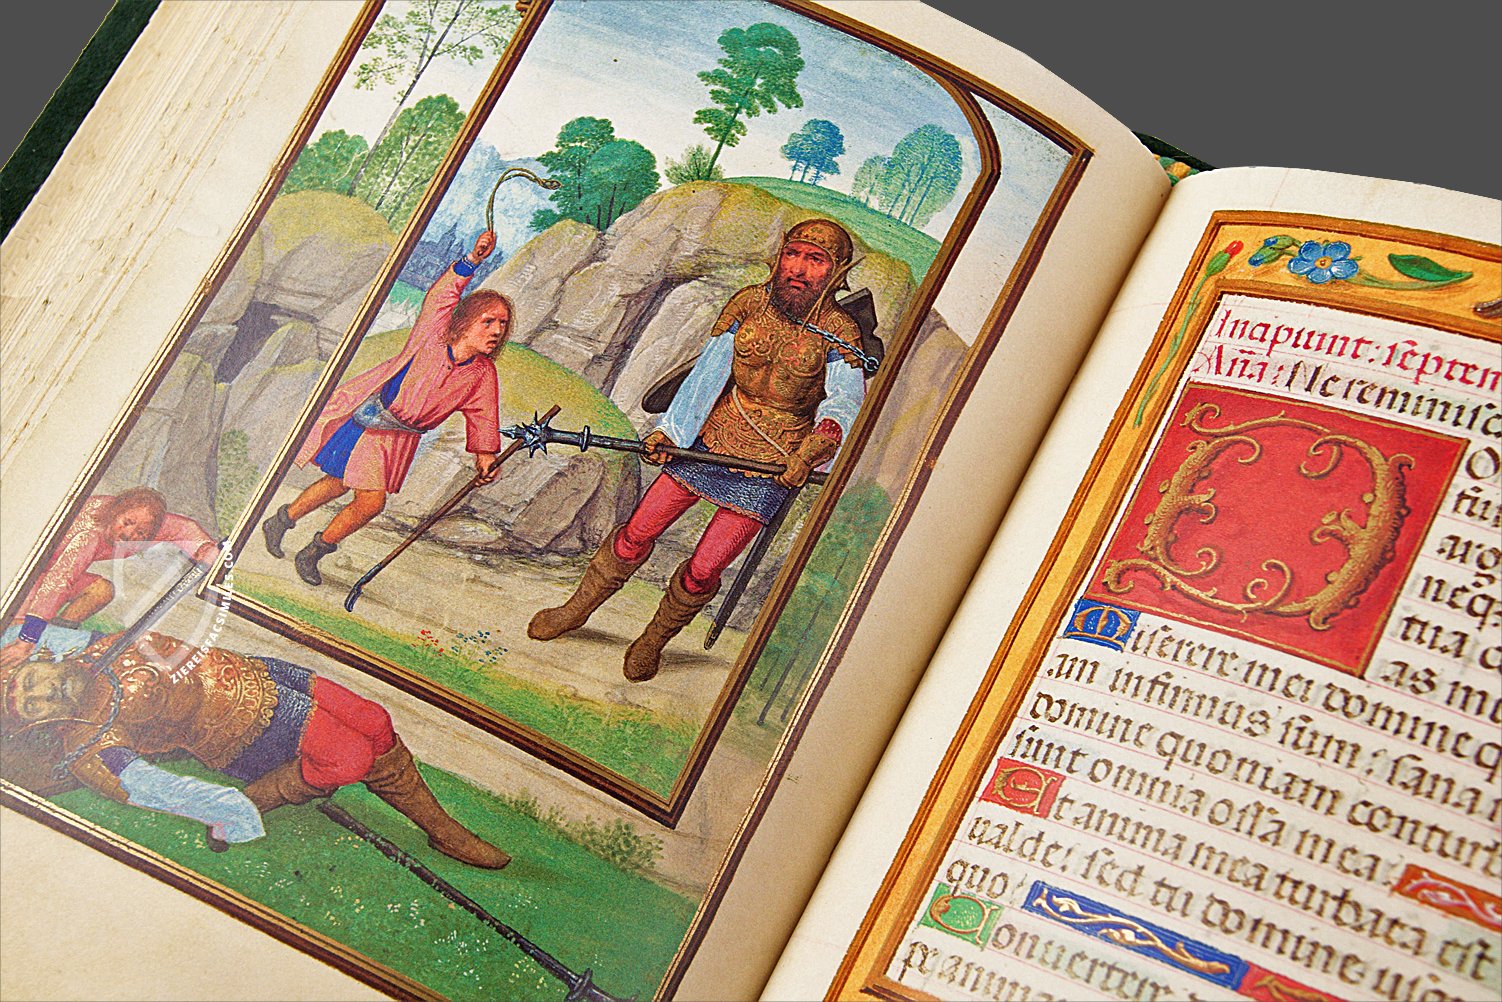 Incipiunt: septem
Aña: Ne reminisca
D
tua
as
Miserere mei domine q
am infirmus sum: sana
domine quoniam conturb
sunt omnia ossa mea.
Et anima mea turbata est
ualde: sed tu domine usq
quo
Conuertere
ZIEREISFACSIMILES.COM